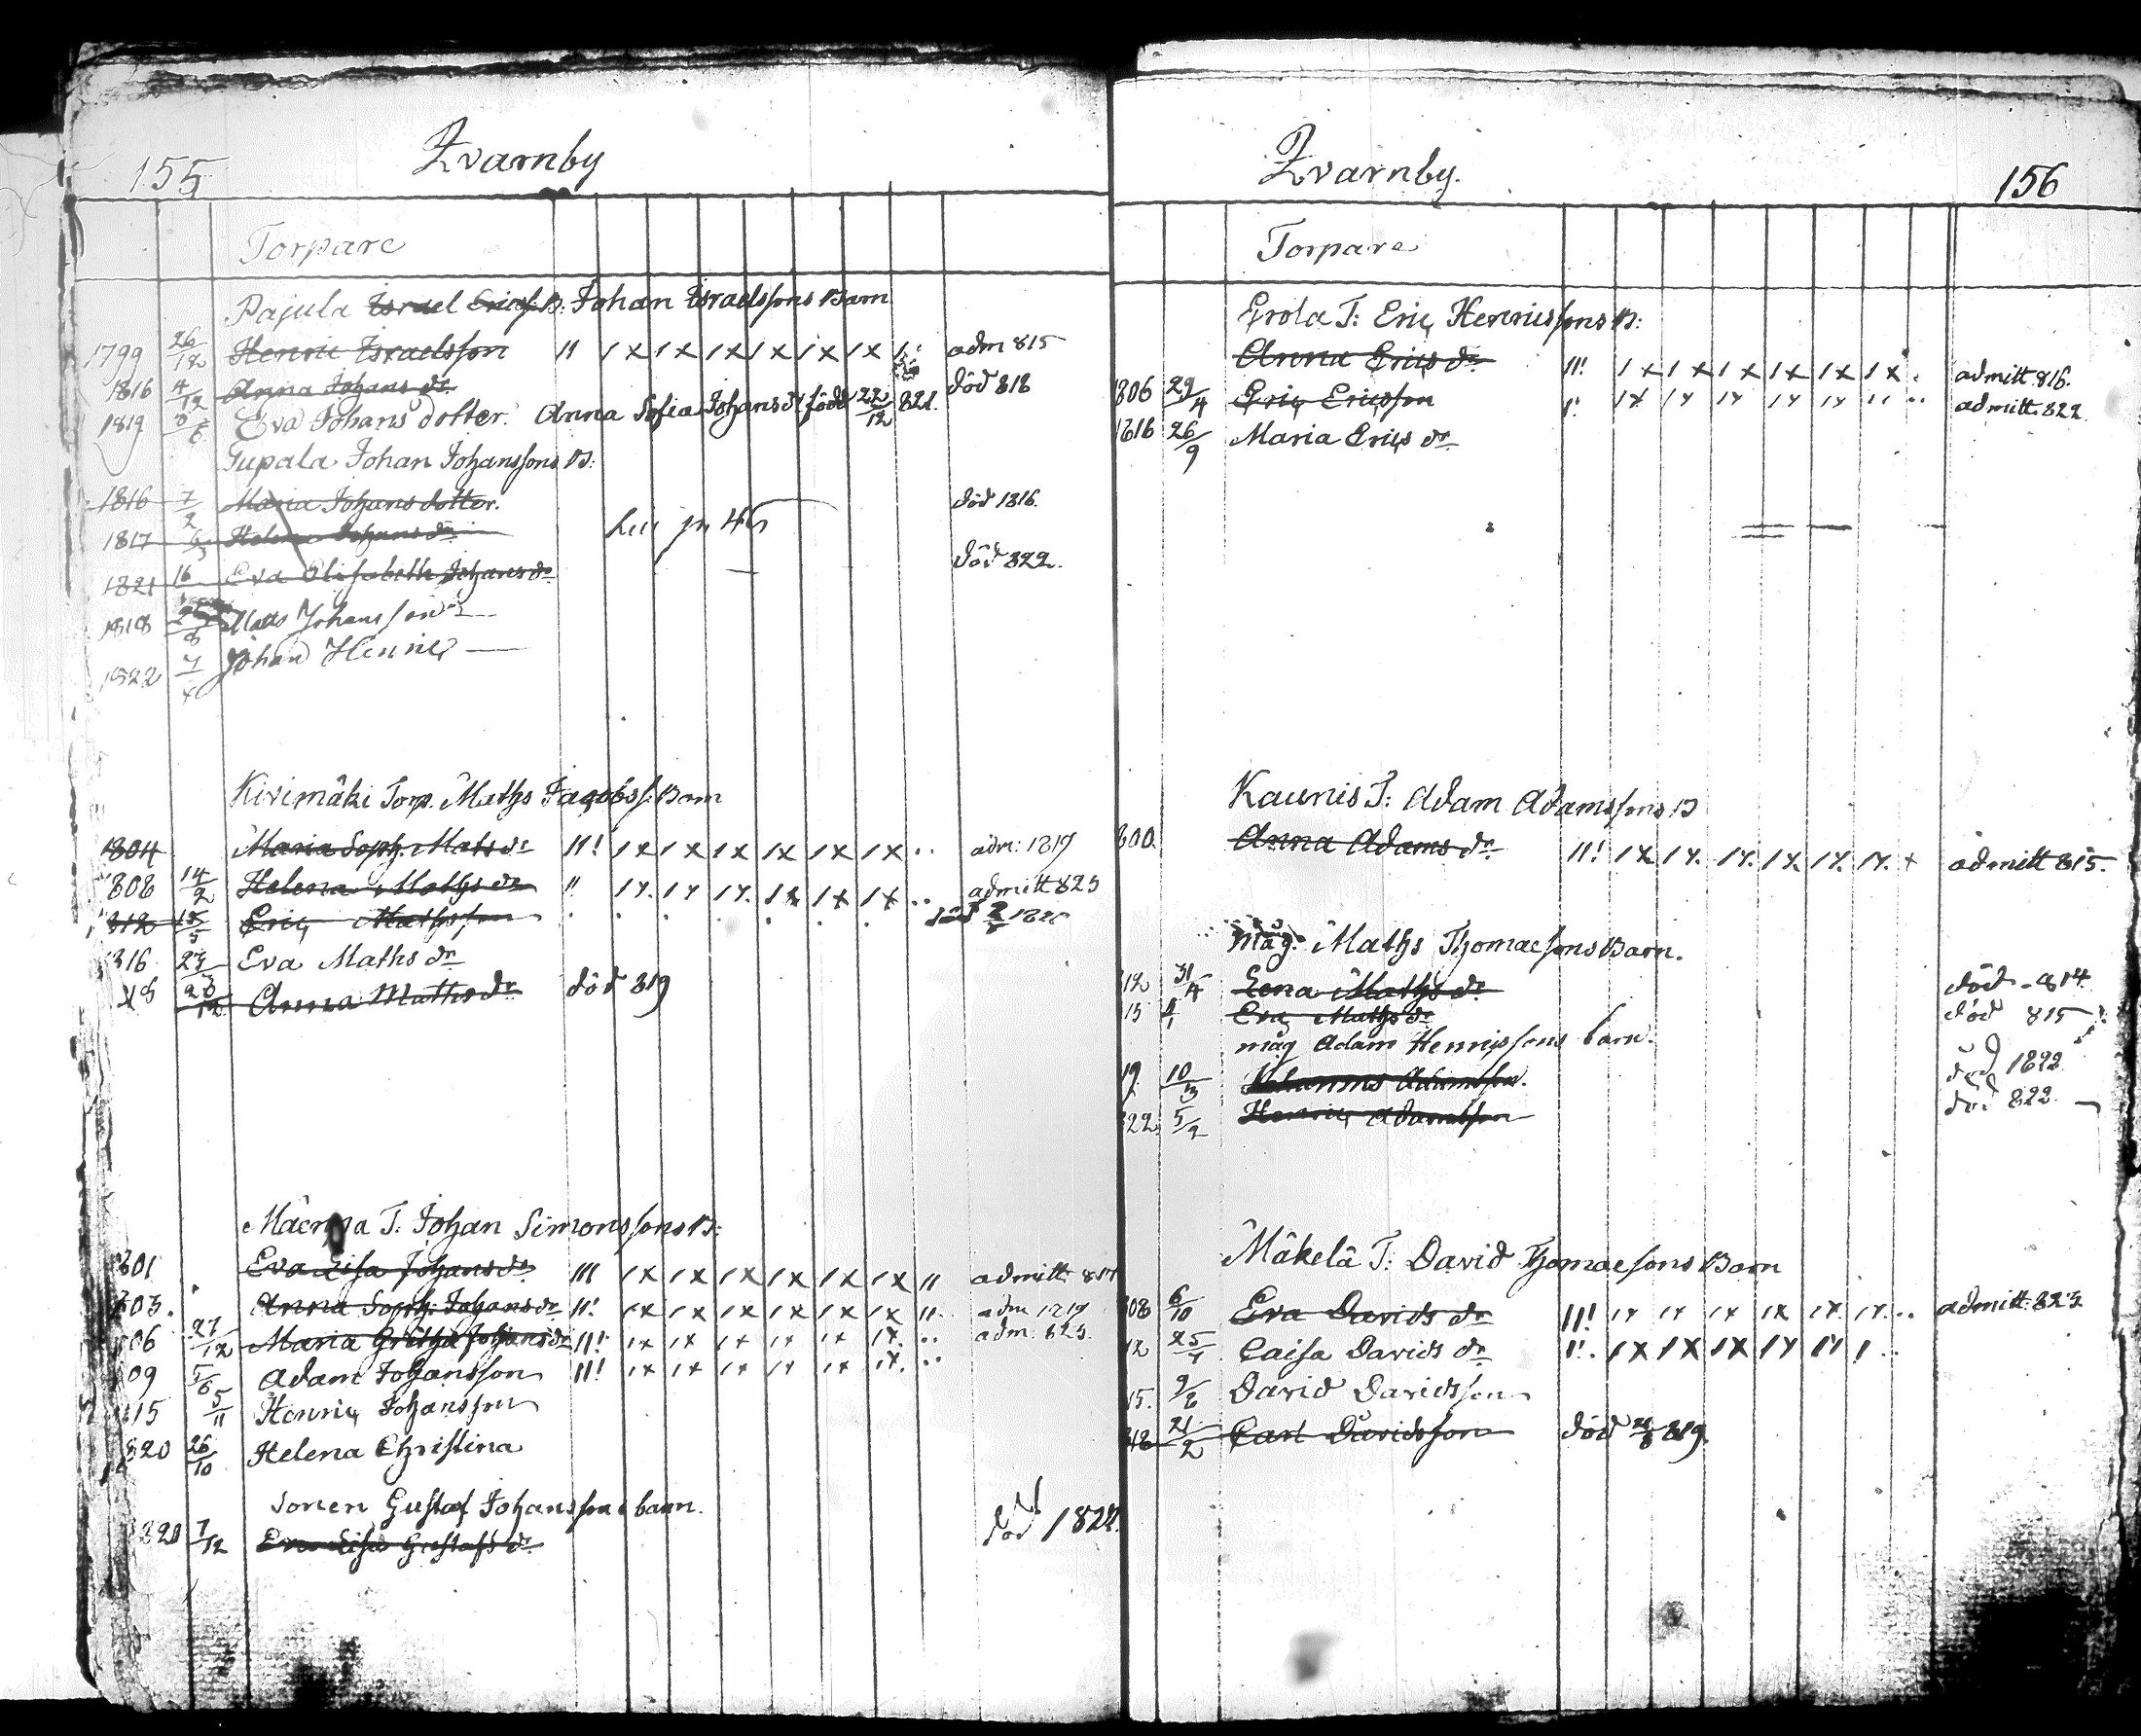 155
Qvarnby
Torpare
Pajula Israel Ericss. B: Johan Israelssons Barn
1799 26/12 Henric Israelsson 11 1x 1x 1x 1x 1x 1x adm 815
1816 4/12 Anna Johans dr. död 818
1819 8/6 Eva Johans dotter. Anna Sofia Johans dr född 22/12 821
Tupala Johan Johanssons B:
1816 7/2 Maria Johans dotter. död 1816.
1817 Helena Johans dr
1821 16 Eva Elisabeth Johans dr död 822.
1818 Matts Johansson
1822 7 Johan Henric
Kivimäki Torp. Maths Jacobs s. Barn
1804 Maria Soph. Mats dr 11! 1x 1x 1x 1x 1x 1x .. adm: 1819
808 14/2 Helena Maths dr 11 1x. 1x 1x. 1x 1x 1x .. admitt 823
812 15/5 Eric Mathsson
816 23 Eva Maths dr
18 23/12 Anna Maths dr död 819
T: Johan Simonssons B:
801 Eva Lisa Johans dr 111 1x 1x 1x 1x 1x 1x 11 admitt. 817
803. Anna Soph: Johans dr 11! 1x 1x 1x 1x 1x 1x 11. adm 1819
806 27/12 Maria Gretha Johans dr 11! 1x 1x 1x 1x 1x 1x. .. adm. 823.
809 5/6 Adam Johansson 11! 1x 1x 1x 1x 1x 1x. ..
815 5/11 Henric Johansson
820 26/10 Helena Christina
Sonen Gustaf Johanssons barn.
7/12 Eva Lisa Gustafs dr. död 1822.
Qvarnby.
156
Torpare
Erola T: Eric Henricssons B:
Anna Erics dr. 11! 1x 1x 1x 1x 1x 1x . admitt. 816.
1806 29/4 Eric Ericsson admitt. 822
1816 26/9 Maria Erics dr
Kaunis T: Adam Adamssons B
800. Anna Adams dr. 11! 1x 1x. 1x. 1x. 1x. 1x. x admitt 815.
måg. Maths Thomaesons Barn.
12 31/4 Lena Maths dr död - 814
15 Eva Maths dr död 815
måg Adam Henricssons barn.
19 10/3 Johannes Adamsson. död 1822
822. 5/2 Henric Adamsson död 822.
Mäkelä T: David Thomaesons Barn
808 6/10 Eva Davids dr 11! 1x 1x 1x 1x 1x. 1x. .. admitt. 823
12 Caisa Davids dr
15. David Davidsson
818 21/2 Carl Davidsson död 819.